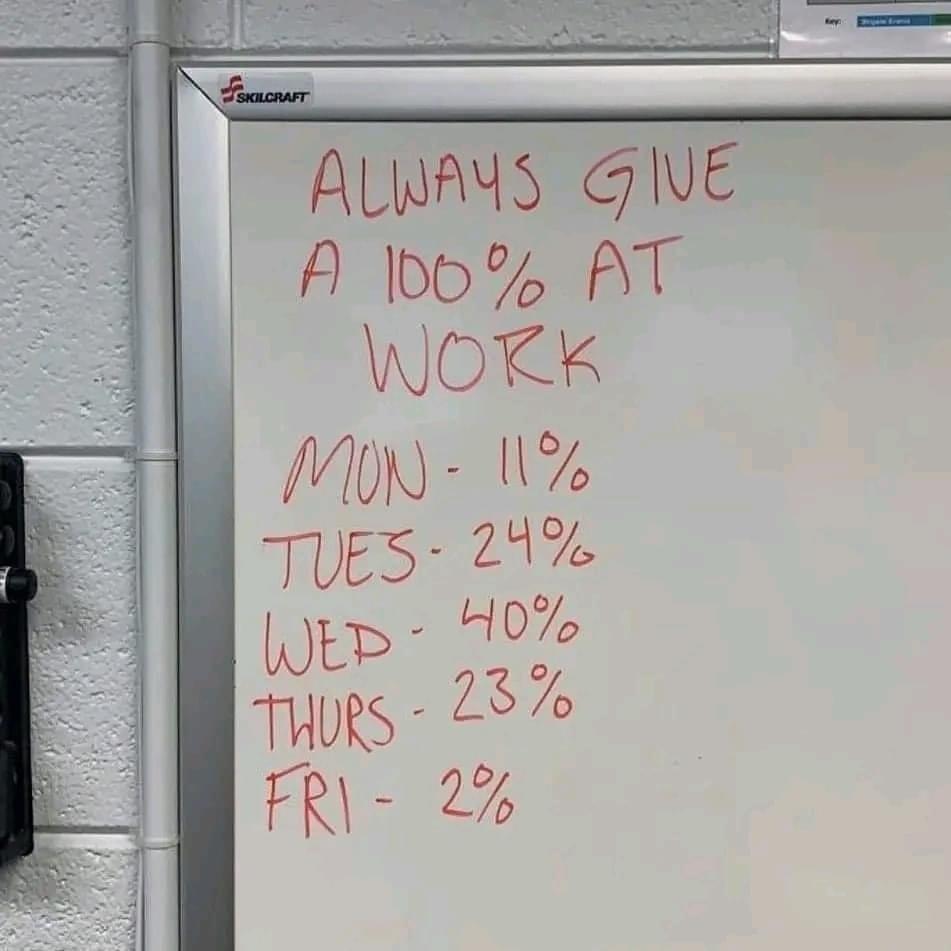 Key: Brigade Events
SKILCRAFT
ALWAYS GIVE
A 100% AT
WORK
MON - 11%
TUES - 24%
WED - 40%
THURS - 23%
FRI - 2%